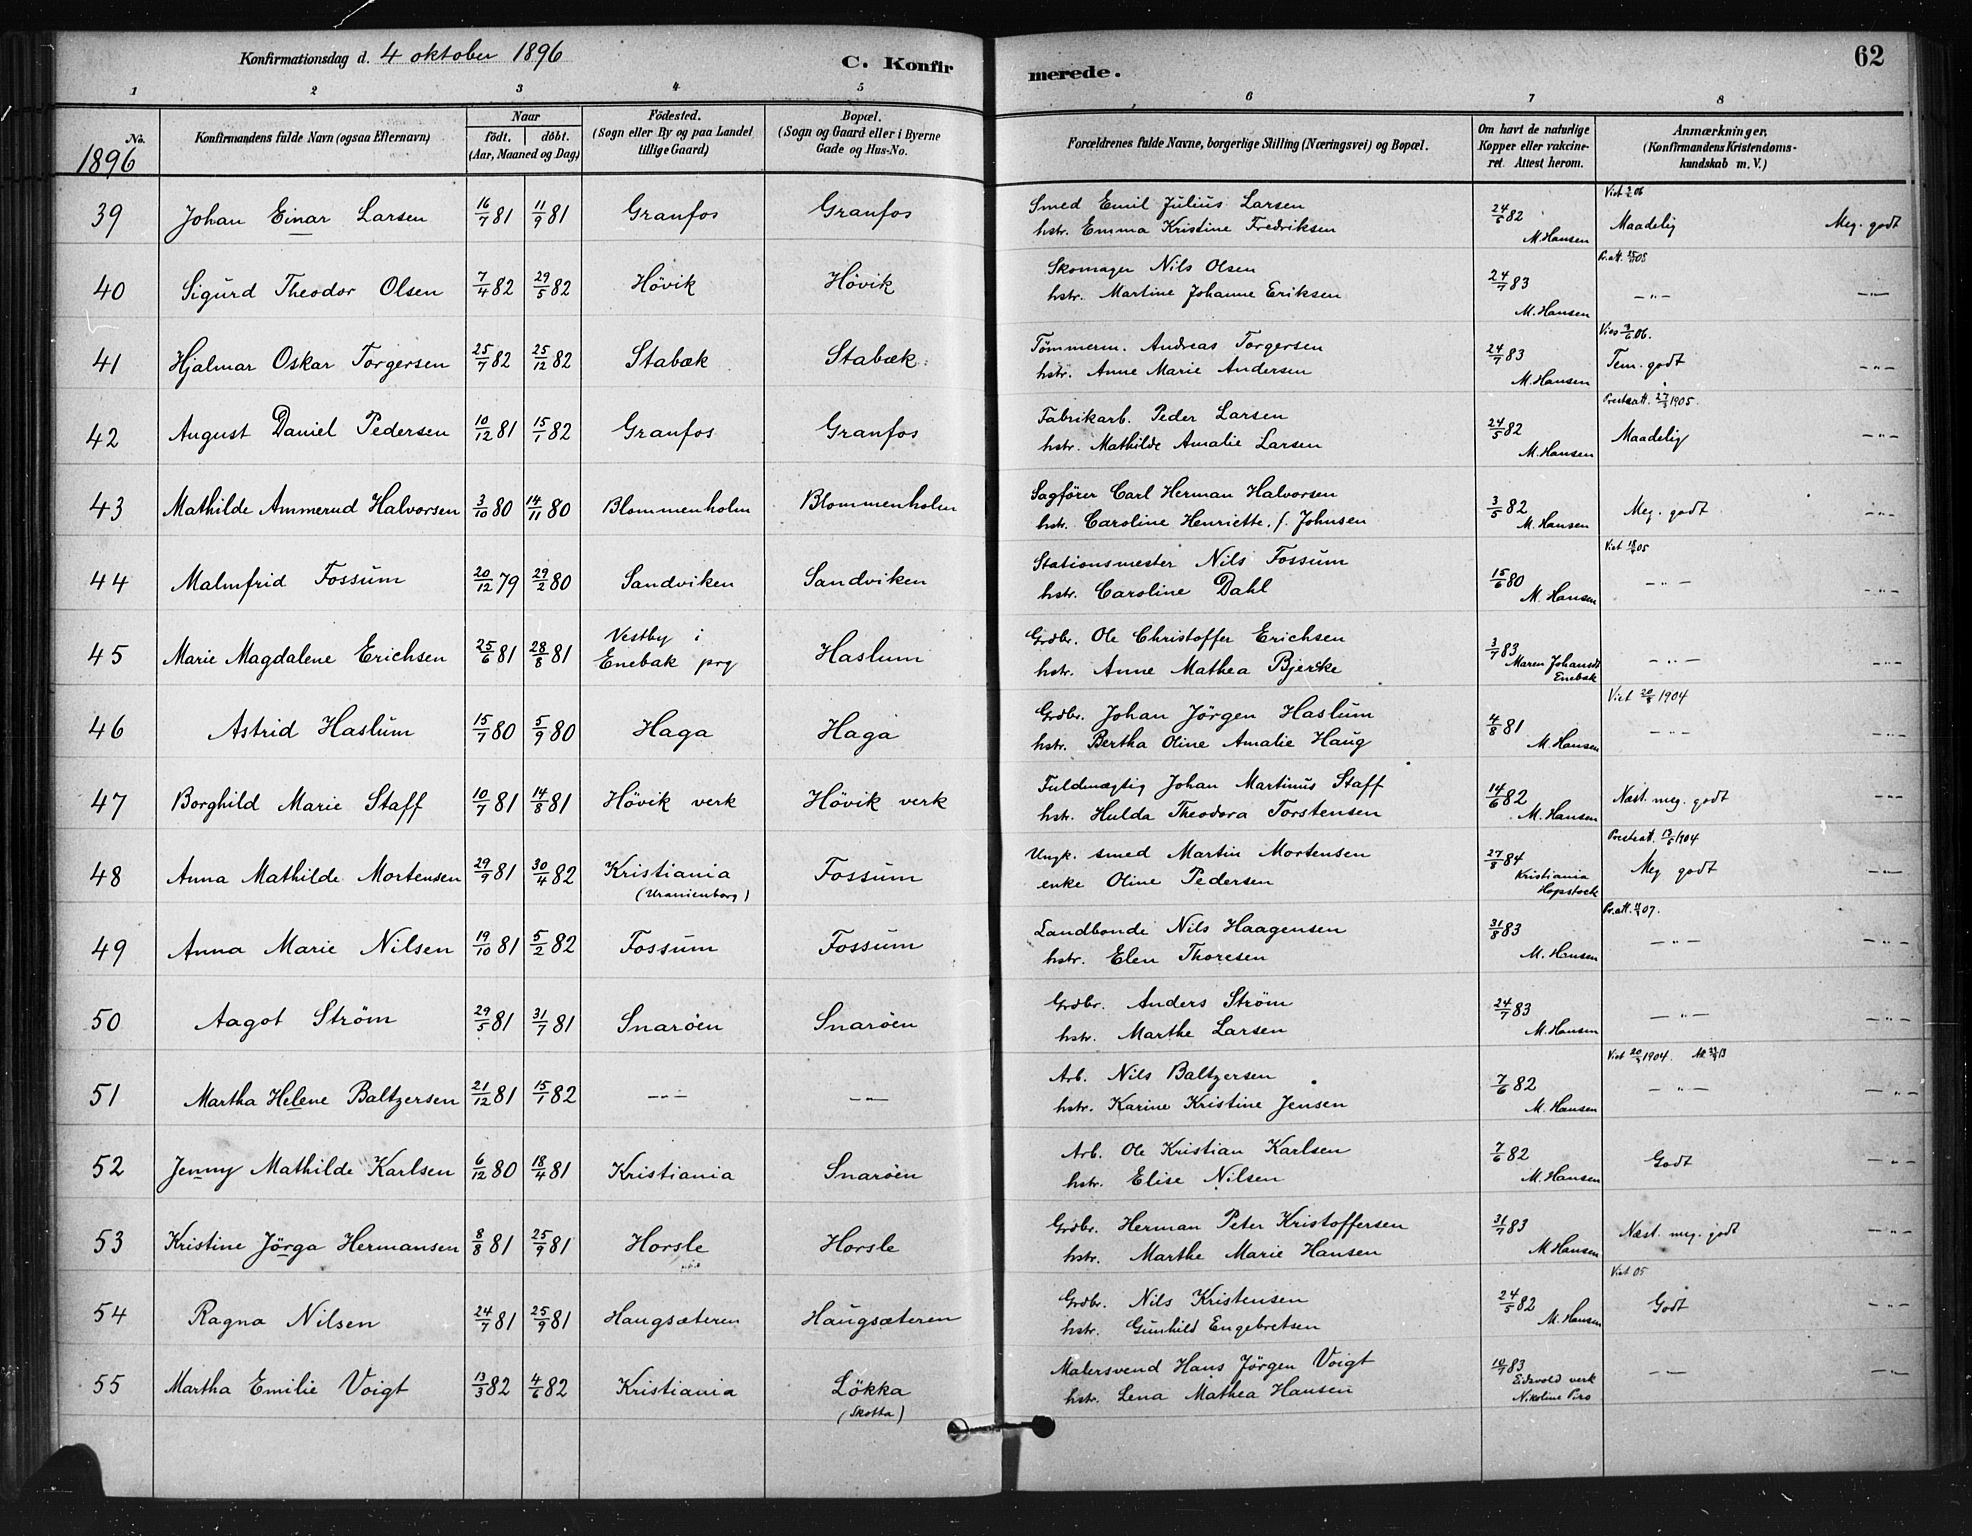 Konfirmationsdag d. 4 oktober 1896
C. Konfirmerede.
62
1 2 3 4 5 6 7 8
No. 1896
Konfirmandens fulde Navn (ogsaa Efternavn)
Naar
født. døbt.
(Aar, Maaned og Dag)
Födested.
(Sogn eller By og paa Landet
tillige Gaard)
Bopæl.
(Sogn og Gaard eller i Byerne
Gade og Hus-No.
Forældrenes fulde Navne, borgerlige Stilling (Næringsvei) og Bopæl.
Om havt de naturlige
Kopper eller vakcine-
ret. Attest herom.
Anmærkninger.
(Konfirmandens Kristendoms-
kundskab m. V.)
39 Johan Einar Larsen 16/7 81 11/9 81 Granfos Granfos
Smed Emil Julius Larsen
hstr. Emma Kristine Fredriksen
24/5 82 M. Hansen
Maadelig Meg. godt
40 Sigurd Theodor Olsen 7/4 82 29/5 82 Hövik Hövik
Skomager Nils Olsen
hstr. Martine Johanne Eriksen
24/7 83 M. Hansen
—"— —"—
41 Hjalmar Oskar Torgersen 25/7 82 25/12 82 Stabæk Stabæk
Tömmerm. Andreas Torgersen
hstr. Anne Marie Andersen
24/7 83 M. Hansen
Tem. godt —"—
42 August Daniel Pedersen 10/12 81 15/1 82 Granfos Granfos
Fabrikarb. Peder Larsen
hstr. Mathilde Amalie Larsen
24/5 82 M. Hansen
Maadelig —"—
43 Mathilde Ammerud Halvorsen 3/10 80 14/11 80 Blommenholm Blommenholm
Sagförer Carl Herman Halvorsen
hstr. Caroline Henriette f. Johnsen
3/5 82 M. Hansen
Meg. godt —"—
44 Malmfrid Fossum 20/12 79 29/2 80 Sandviken Sandviken
Stationsmester Nils Fossum
hstr. Caroline Dahl
15/6 80 M. Hansen
—"— —"—
45 Marie Magdalene Erichsen 25/6 81 28/8 81 Vestby i Enebak prg Haslum
Grdbr. Ole Christoffer Erichsen
hstr. Anne Mathea Bjercke
3/7 83 Maren Johansdt Enebak
—"— —"—
46 Astrid Haslum 15/7 80 5/9 80 Haga Haga
Grdbr. Johan Jörgen Haslum
hstr. Bertha Oline Amalie Haug
4/8 81 M. Hansen
—"— —"—
47 Borghild Marie Staff 10/7 81 14/8 81 Hövik verk Hövik verk
Fuldmægtig Johan Martinus Staff
hstr. Hulda Theodora Torstensen
14/6 82 M. Hansen
Næst. meg. godt —"—
48 Anna Mathilde Mortensen 29/9 81 30/4 82 Kristiania (Uranienborg) Fossum
Ungk. smed Martin Mortensen
enke Oline Pedersen
27/8 84 Kristiania Hopstock
Meg godt —"—
49 Anna Marie Nilsen 19/10 81 5/2 82 Fossum Fossum
Landbonde Nils Haagensen
hstr. Elen Thoresen
31/8 83 M. Hansen
—"— —"—
50 Aagot Ström 29/5 81 31/7 81 Snaröen Snaröen
Grdbr. Anders Ström
hstr. Marthe Larsen
24/7 83 M. Hansen
—"— —"—
51 Martha Helene Baltzersen 21/12 81 15/1 82 —"— —"—
Arb. Nils Baltzersen
hstr. Karine Kristine Jensen
7/6 82 M. Hansen
—"— —"—
52 Jenny Mathilde Karlsen 6/12 80 18/4 81 Kristiania Snaröen
Arb. Ole Kristian Karlsen
hstr. Elise Nilsen
7/6 82 M. Hansen
Godt —"—
53 Kristine Jörga Hermansen 8/8 81 25/9 81 Horsle Horsle
Grdbr. Herman Peter Kristoffersen
hstr. Marthe Marie Hansen
31/7 83 M Hansen
Næst. meg. godt —"—
54 Ragna Nilsen 24/7 81 25/9 81 Haugsæteren Haugsæteren
Grdbr. Nils Kristensen
hstr. Gunhild Engebretsen
24/5 82 M. Hansen
Viet 05
Godt —"—
55 Martha Emilie Voigt 13/3 82 4/6 82 Kristiania Lökka (Skotta)
Malersvend Hans Jörgen Voigt
hstr. Lena Mathea Hansen
10/7 83 Eidsvold verk Nikoline
—"— —"—